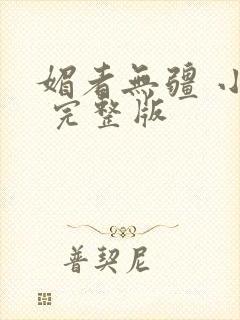 媚者無疆 小
完整版
普契尼